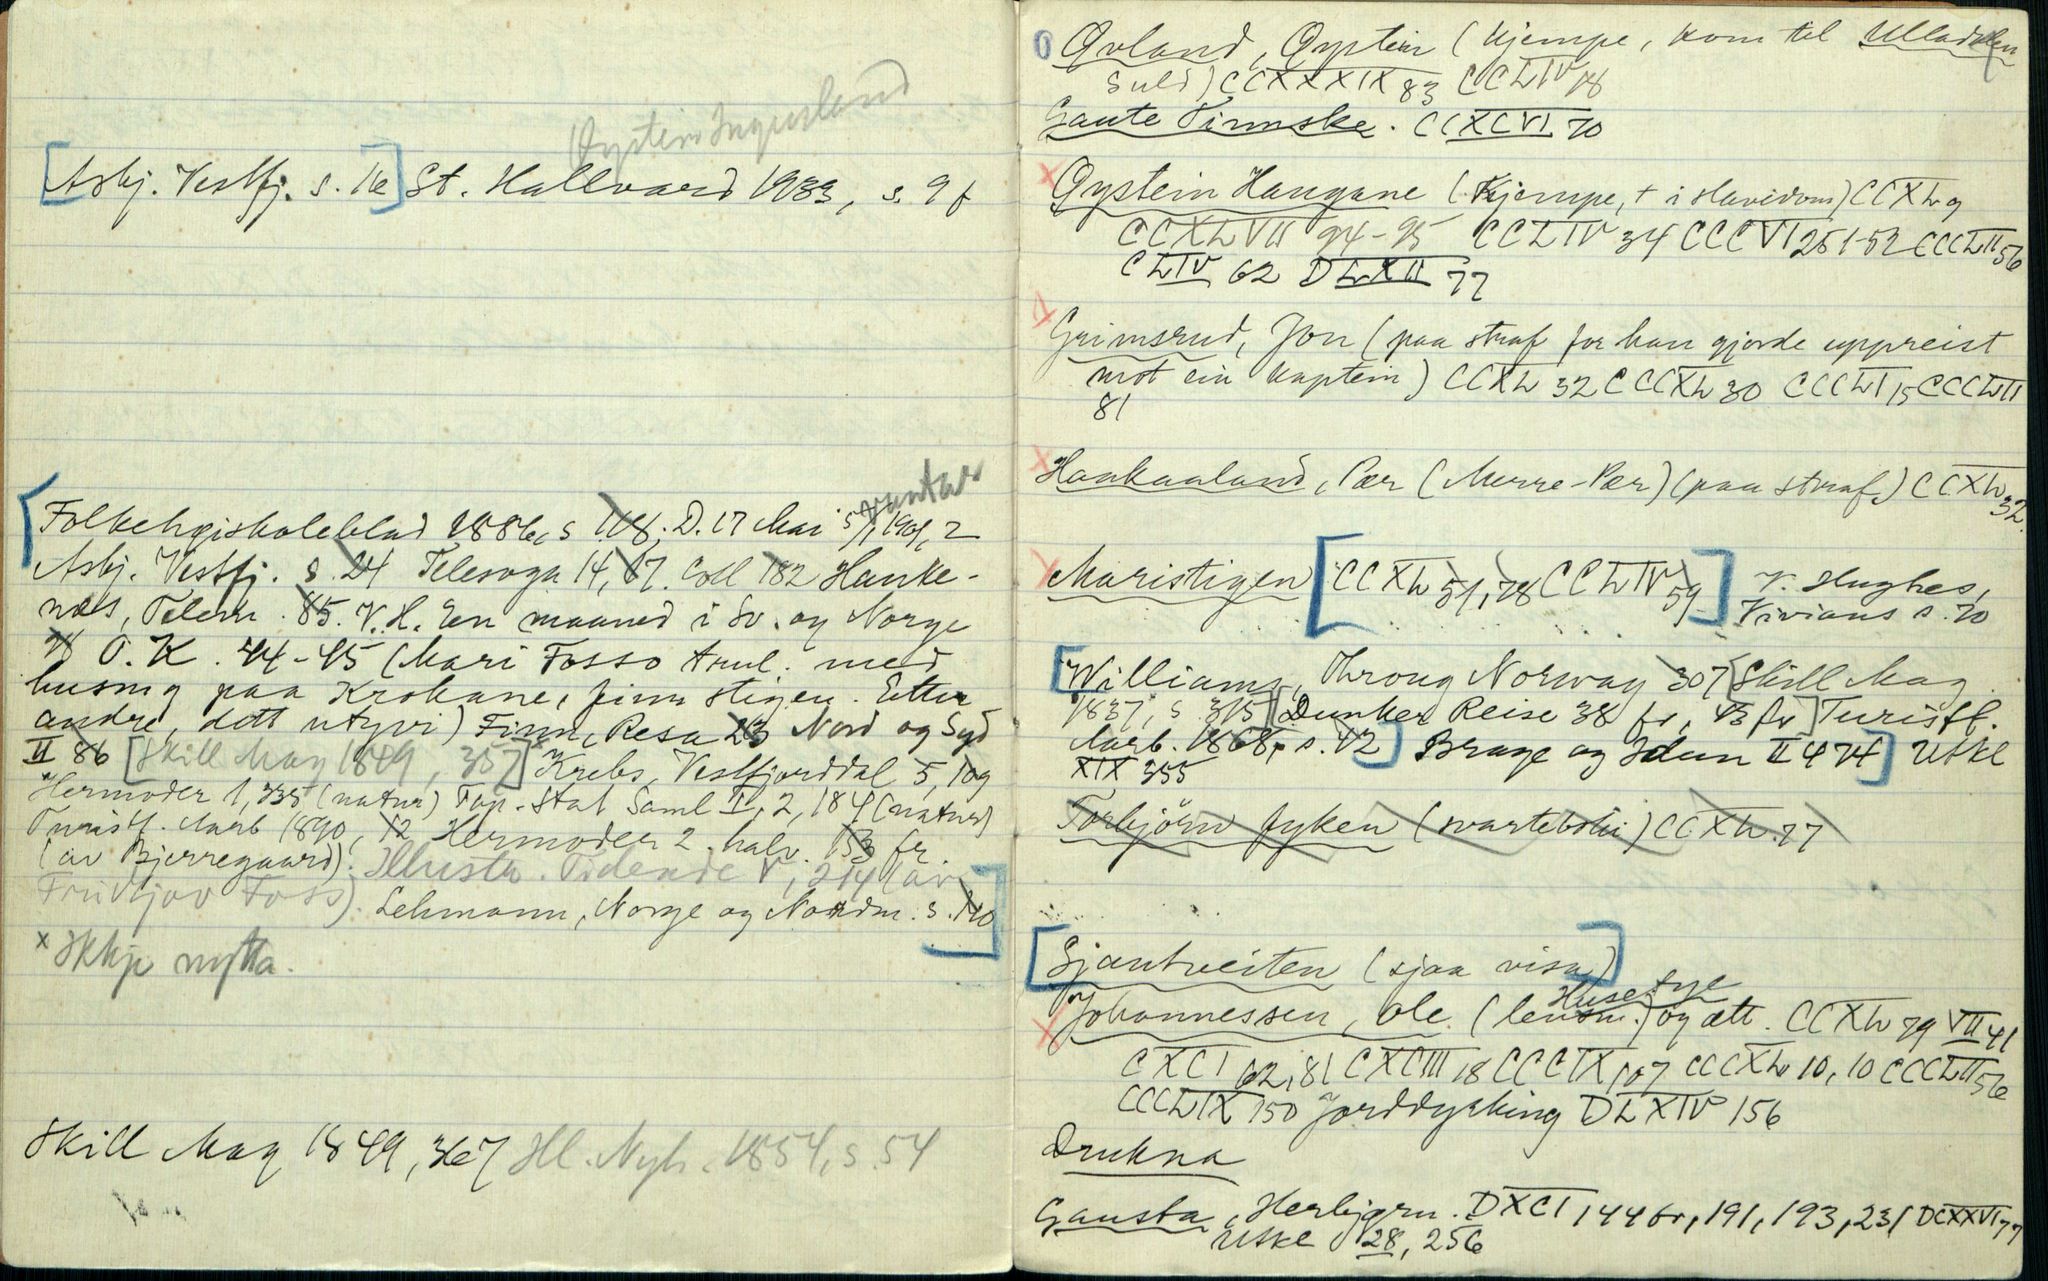 Øystein Ingusland
[Asbj. Vestfj. s. 16] St. Hallvard 1933, s. 9 f
vantar
[Folkehøiskoleblad 1886, s 118. D. 17 Mai 5/1 1901, 2
Asbj. Vestfj. s. 24 Telesoga 14, 17. Coll 182 Hauke-
næs, Telem. 85. V. H. En maaned i Sv. og Norge
O. K. 44-45 (Mari Fosso trul. med
husmg paa Krokane, finn stigen. Etter
andre, dott utyvi) Finn, Resa 23 Nord og Syd
II 86 [Skill Mag 1849, 357] Krebs, Vestfjorddal 5, 10g
Hermoder 1, 235 (natur) Top. Stat Saml I, 2, 184 (natur)
Turistf. Aarb 1890, 12 Hermoder 2. halv. 153 fr.
(av Bjerregaard). Illustr. Tidende V, 214 (av
Fridtjov Foss). Lehmann, Norge og Nordm. s. 110]
x Skkjo nytta.
Skill Mag 1849, 367 Ill. Nyh. 1854, s. 54
O Øvland, Øystein (kjempe, kom til Ulladalen
Suld) CCXXXIX 83 CCLIV 18
Gaute Tinnske. CCXCVI 70
x Øystein Haugane (kjempe, + i Havidom) CCXL 9
CCXLVII 94-95 CCLIV 34 CCCVI 251-52 CCCLII 56
CLIV 62 DLXII 77
x Grimsrud, Jon (paa straf for han gjorde uppreist
mot ein kaptein) CCXL 32 CCCXL 30 CCCLI 15 CCCLII
81
x Haakaaland, Pær (Merre-Pær) (paa straf) CCXL 32.
x Maristigen [CCXL 51, 78 CCLIV 59] V. Hughes,
Vivians s. 70
[Williams, Throug Norway 307 [Skill Mag.
1837, s 315] [Dunker Reise 38 fr, 43 fr] Turistf.
Aarb. 1868, s. 42] Brage og Idun II 474] Utkl
XIX 355
Torbjörn fyken (svarteboki) CCXL 77
[Gjantveiten (sjaa visa)]
Husefye
x Johannessen, Ole (lensm.) og ætt. CCXL 79 VII 41
CXCI 62, 81 CXCIII 18 CCCIX 107 CCCXL 10, 10 CCCLII 56
CCCLIX 150 Jorddyrking DLXIV 156
Drukna
Gausta, Herbjørn. DXCI 144 fr, 191, 193, 231 DCXXVI 77
Utkl 28, 256